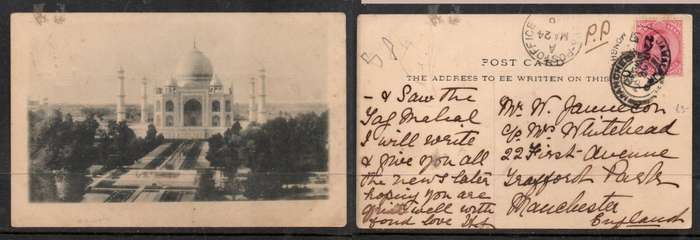 P.P
POST OFFICE
A
MA 24
POST CARD
THE ADDRESS TO BE WRITTEN ON THIS
- & Saw the
Taj Mahal
I will write
& give you all
the news later
hoping you are
quite well with
fond love
Mr. W. Jamieson
c/o Mrs Whitehead
22 First-Avenue
Trafford Park
Manchester
England